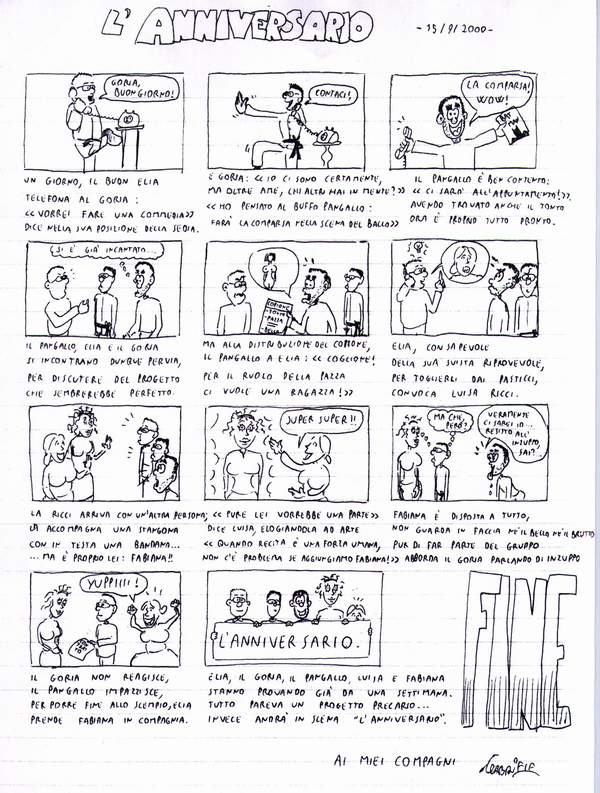 L'ANNIVERSARIO
-15/9/2000-
GORIA,
BUONGIORNO!
UN GIORNO, IL BUON ELIA
TELEFONA AL GORIA:
«VORREI FARE UNA COMMEDIA»
DICE NELLA SUA POSIZIONE DELLA SEDIA.
CONTACI!
E GORIA: «IO CI SONO CERTAMENTE,
MA OLTRE A ME, CHI ALTRI HAI IN MENTE?»
«HO PENSATO AL BUFFO PANGALLO:
FARÀ LA COMPARSA NELLA SCENA DEL BALLO»
LA COMPARSA!
WOW!
IL PANGALLO È BEN CONTENTO:
«CI SARÒ ALL'APPUNTAMENTO!».
AVENDO TROVATO ANCHE IL TONTO
ORA È PROPRIO TUTTO PRONTO.
SI È GIÀ INCANTATO...
IL PANGALLO, ELIA E IL GORIA
SI INCONTRANO DUNQUE PER VIA,
PER DISCUTERE DEL PROGETTO
CHE SEMBREREBBE PERFETTO.
COPIONE
-TONTO
-PAZZA
-BELLO
MA ALLA DISTRIBUZIONE DEL COPIONE,
IL PANGALLO A ELIA: «COGLIONE!
PER IL RUOLO DELLA PAZZA
CI VUOLE UNA RAGAZZA!»
ELIA, CONSAPEVOLE
DELLA SUA SVISTA RIPROVEVOLE,
PER TOGLIERLI DAI PASTICCI,
CONVOCA LUISA RICCI.
LA RICCI ARRIVA CON UN'ALTRA PERSONA;
LA ACCOMPAGNA UNA STANGONA
CON IN TESTA UNA BANDANA...
...MA È PROPRIO LEI: FABIANA!!
SUPER SUPER!!
«PURE LEI VORREBBE UNA PARTE»
DICE LUISA, ELOGIANDOLA AD ARTE
«QUANDO RECITA È UNA FORZA UMANA,
NON C'È PROBLEMA SE AGGIUNGIAMO FABIANA!»
MA CHE,
PERÒ?
VERAMENTE
CI SAREI IO...
RESTITO ALL'
INZUPPO,
SAI?..
FABIANA È DISPOSTA A TUTTO,
NON GUARDA IN FACCIA NÉ IL BELLO NÉ IL BRUTTO
PUR DI FAR PARTE DEL GRUPPO
ABBORDA IL GORIA PARLANDO DI INZUPPO
YUPPIIII!
IL GORIA NON REAGISCE,
IL PANGALLO IMPAZZISCE,
PER PORRE FINE ALLO SCEMPIO, ELIA
PRENDE FABIANA IN COMPAGNIA.
L'ANNIVERSARIO.
ELIA, IL GORIA, IL PANGALLO, LUISA E FABIANA
STANNO PROVANDO GIÀ DA UNA SETTIMANA.
TUTTO PAREVA UN PROGETTO PRECARIO...
INVECE ANDRÀ IN SCENA "L'ANNIVERSARIO".
FINE
AI MIEI COMPAGNI
GABRIELE